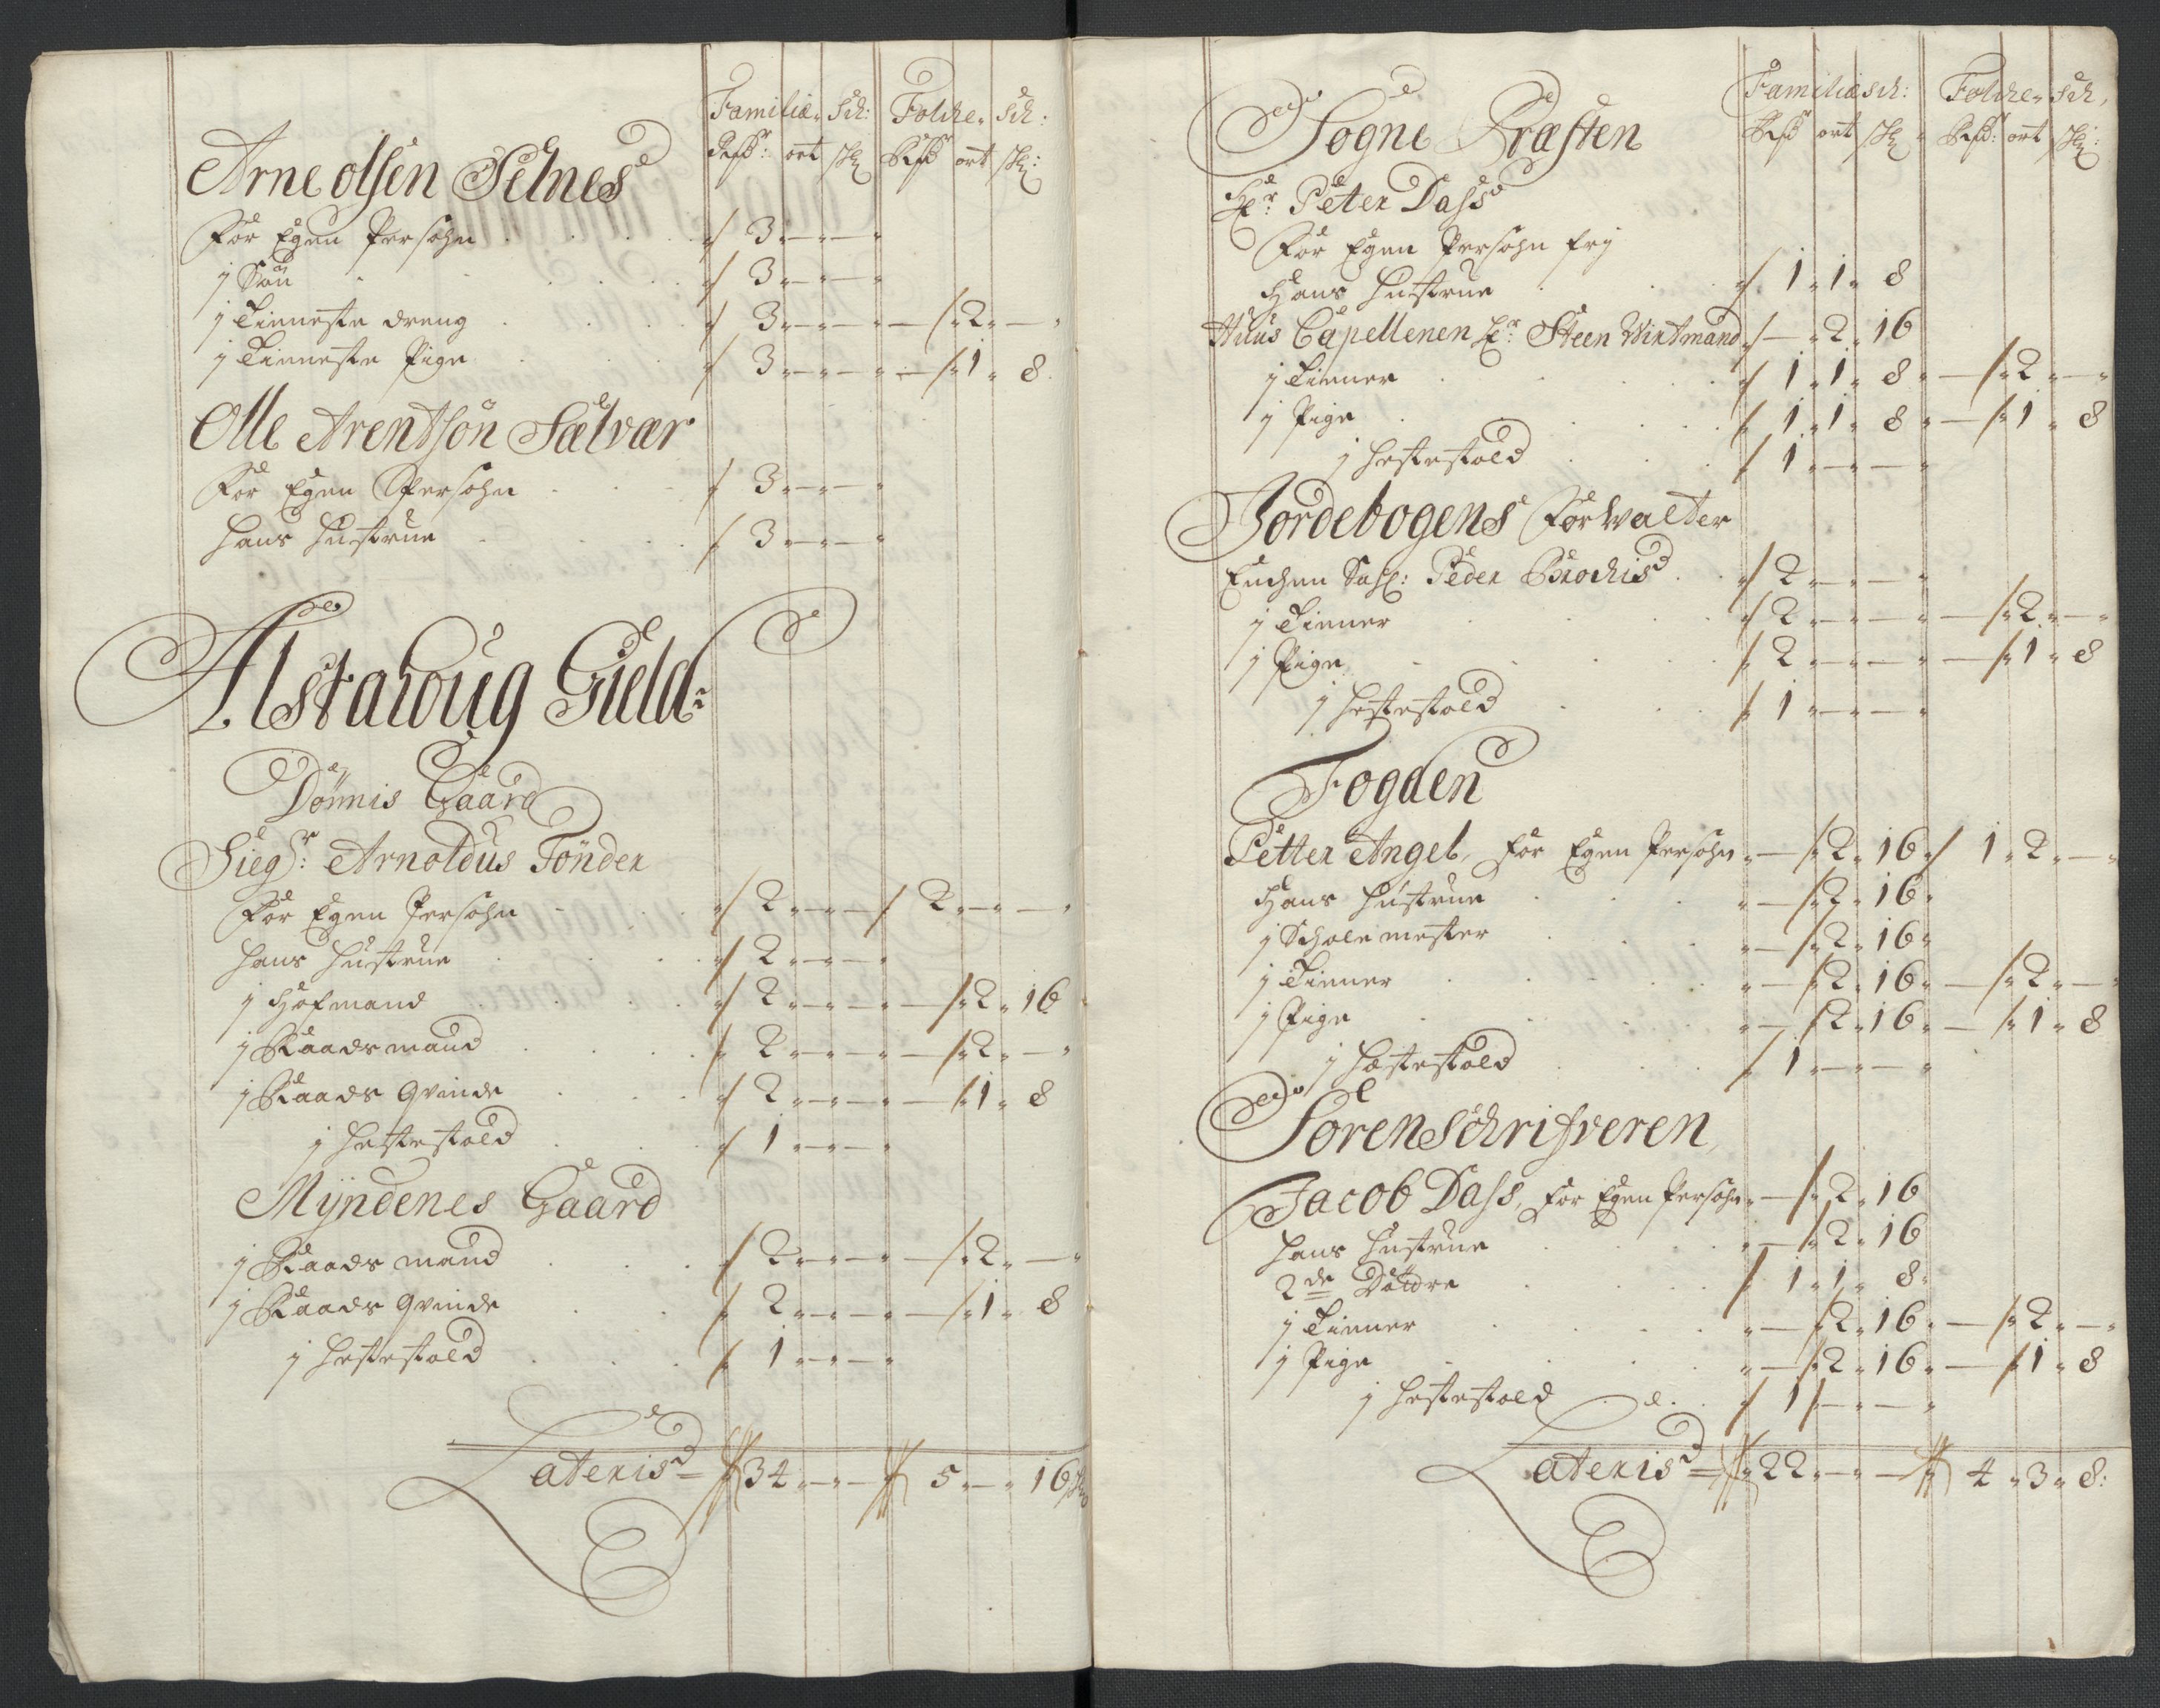 Familiæ Sch: Folche Sch:
Rdr: ort sk Rdr ort sk:
Arne olsen Selnes
For Egen Persohn 3 - -
1 Søn 3 - -
1 Tienneste dreng 3 - - - 2 -
1 Tienneste Pige 3 - - - 1 8
Olle Arentsøn Sælvær
For Egen Persohn 3 - -
hans hustrue 3 - -
Alstahoug Gield:
Dønnis Gaard
Siegr: Arnoldus Tønder
For Egen Persohn 2 - - 2 - -
hans hustrue 2 - -
1 Hofmand 2 - - - 2 16
1 Raadsmand 2 - - - 2 -
1 Raads qvinde 2 - - - 1 8
1 hestestald 1 - -
Myndenes Gaard
1 Raads mand 2 - - - 2 -
1 Raads qvinde 2 - - - 1 8
1 hestestald 1 - -
Lateris 34 - - 5 - 16 sk
Familiæ Sch: Folche Sch,
Rdr ort sk Rdr: ort sk:
Sogne Præsten
Hr: Peter Dass
For Egen Persohn fri
Hans hustrue 1 1 8
Huus Capellenen Hr: Steen Wirtmand - 2 16
1 Tienner 1 1 8 - 2 -
1 Pige 1 1 8 - 1 8
1 hestestald 1 - -
Jordebogens Forwalter
Enchen Sahl: Peder Brochis 2 - -
1 Tienner 2 - - - 2 -
1 Pige 2 - - - 1 8
1 hestestald 1 - -
Fogden
Petter Angel, for Egen Persohn - 2 16 1 2 -
Hans hustrue - 2 16
1 Schole mester - 2 16
1 Tienner - 2 16 - 2 -
1 Pige - 2 16 - 1 8
1 hæstestald 1 - -
Sorenschrifveren
Jacob Dass, for Egen Persohn - 2 16
hans hustrue - 2 16
2de Døttre 1 1 8
1 Tienner - 2 16 - 2 -
1 Pige - 2 16 - 1 8
1 hestestald 1 - -
Lateris 22 - - 4 3 8: